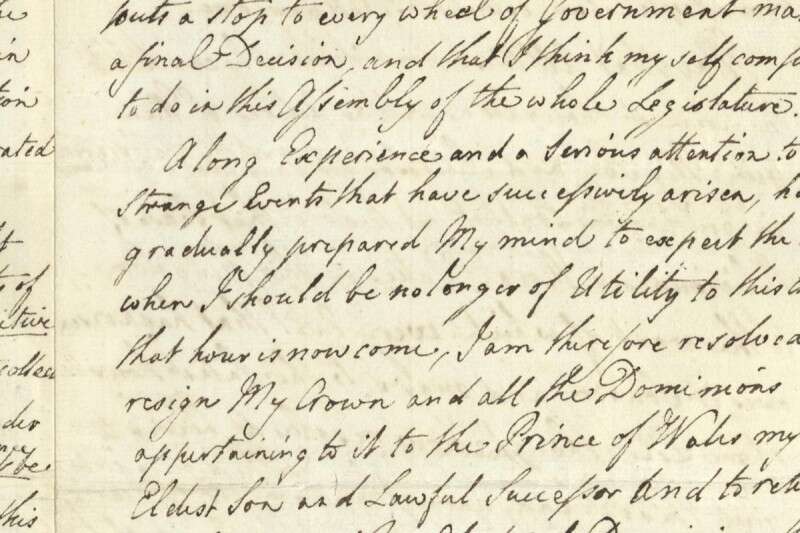 puts a stop to every wheel of Government ma
a final Decision, and that I think my self comp
to do in this Assembly of the whole Legislature.
A long Experience and a serious attention to
strange Events that have successively arisen, ha
gradually prepared My mind to expect the
when I should be no longer of Utility to this
that hour is now come, I am therefore resolved
resign My Crown and all the Dominions
appertaining to it to the Prince of Wales my
Eldest Son and Lawful Successor and to reti
in
tion
rated
of
itive
collec
der
be
this